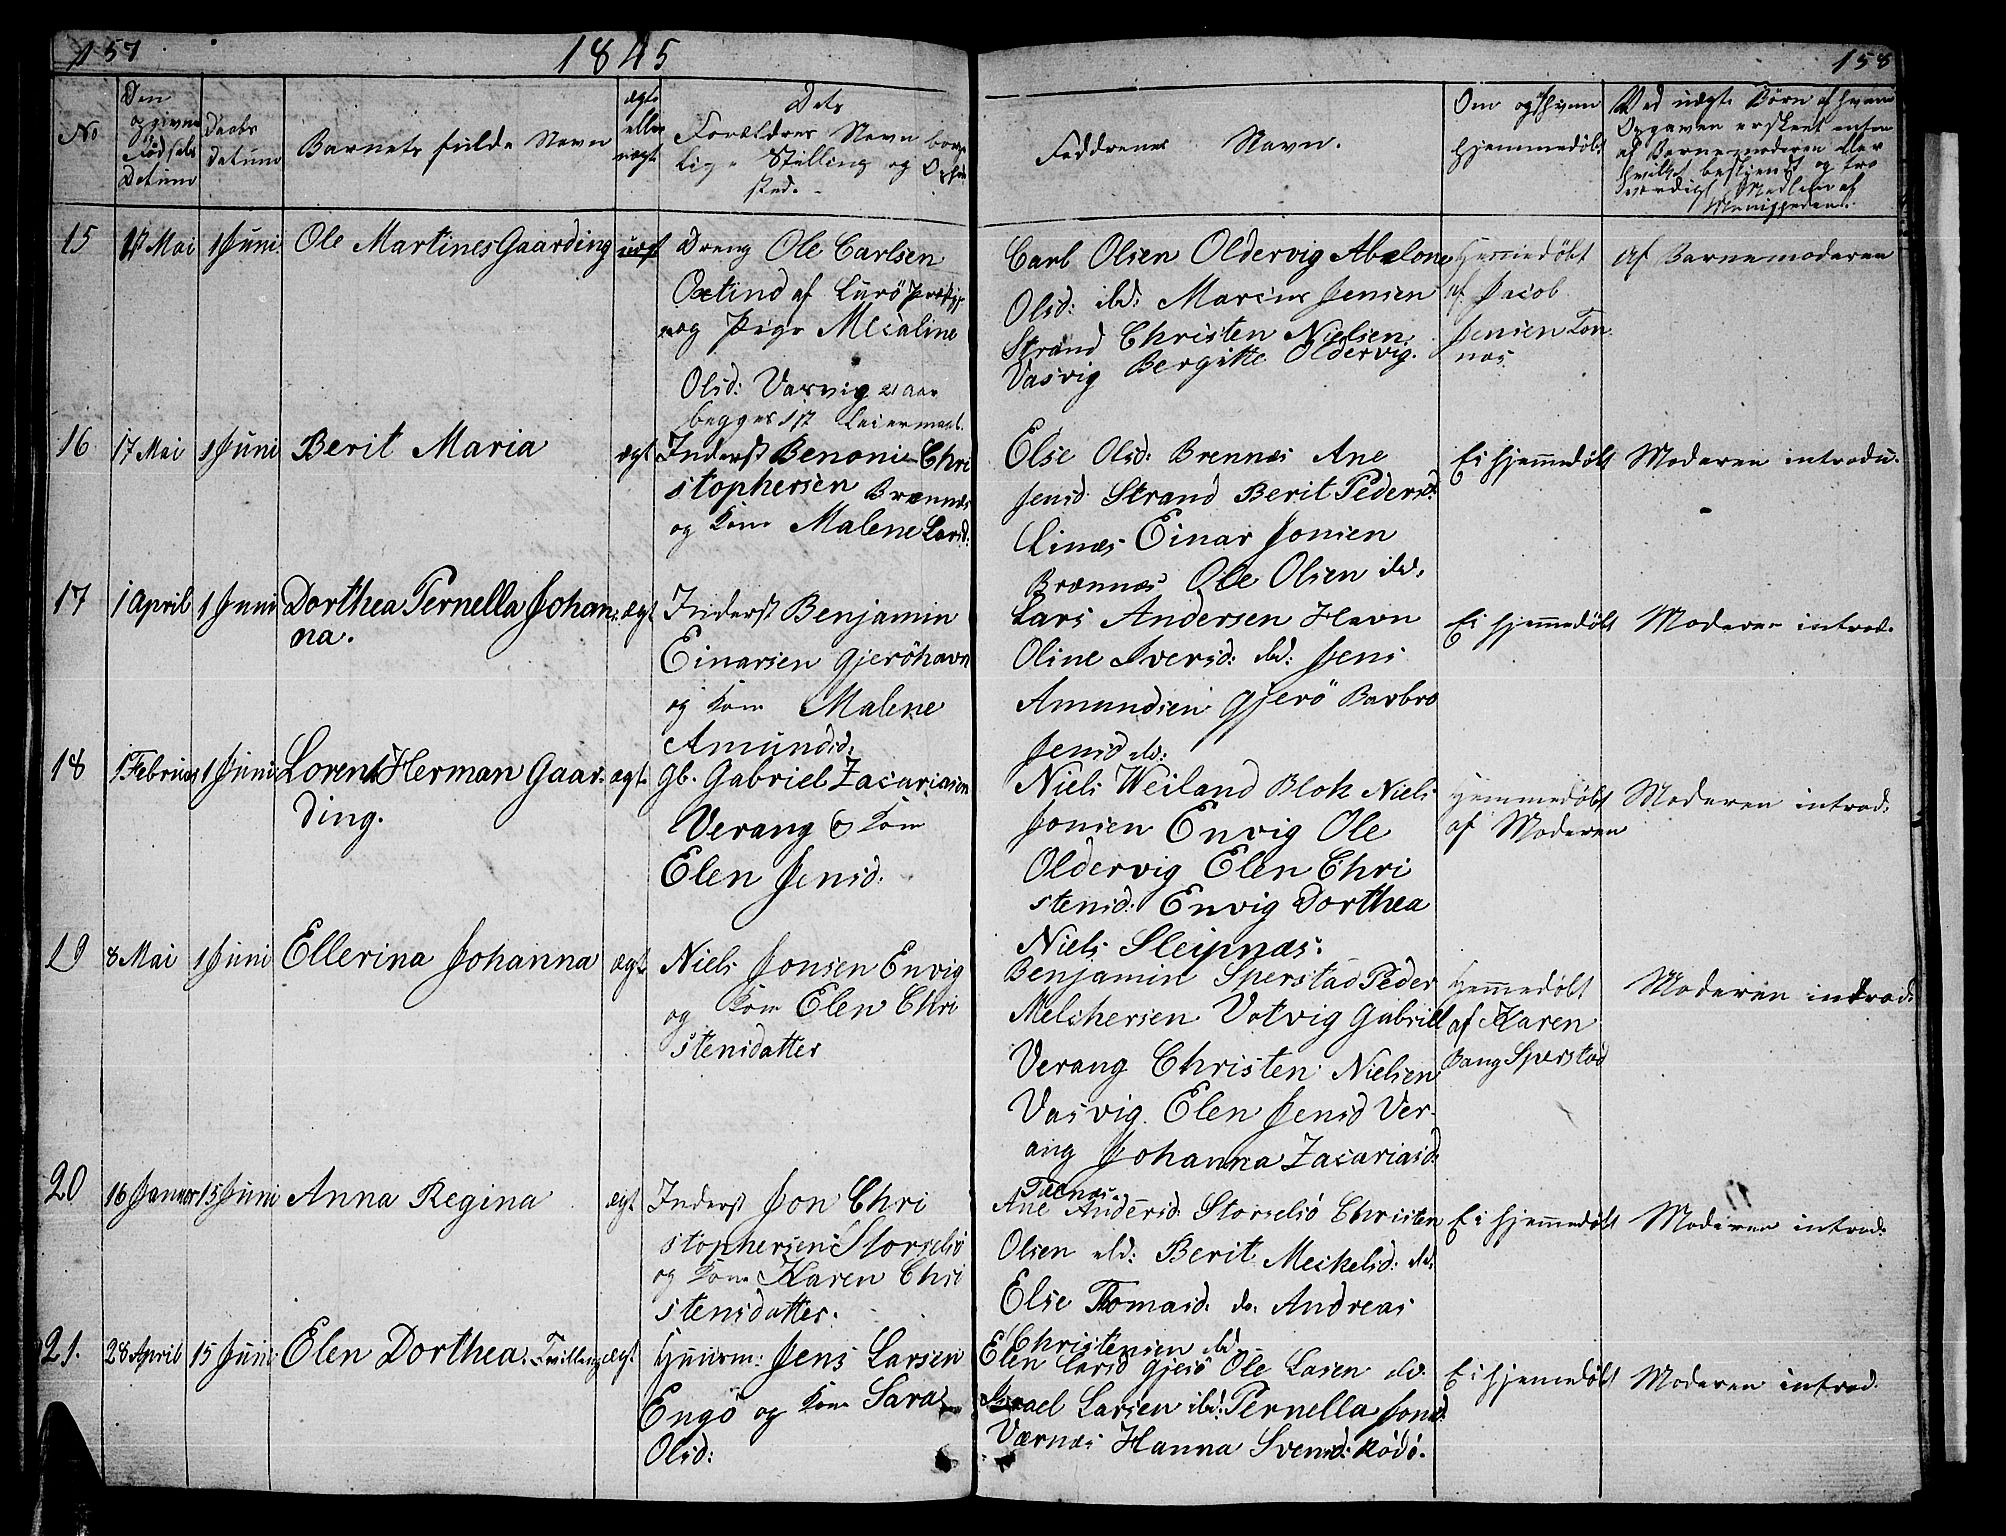 157
1845
158
No
Den
opgivne
Fødsels
Datum
Daabs
datum
Barnets fulde Navn
ægte
eller
uægt.
Dets
Forældres Navn borger
lige Stilling og Op
sted.
Faddrenes Navn.
Om og af hvem
hjemmedøbt
Ved uægte Børn af hvem
Opgaven er skeet enten
af Barnemoderen eller
hvilket bestjendt og tro
værdigt Medlem af
Menigheden.
15
Mai
1 Juni
Ole Martines Gaarding
uægt
Dreng Ole Carlsen
Oxtind af Lurö Præstgj
og Pige Mecaline
Olsd: Vasvig 21 Aar
begges 1st Leiermaal.
Carl Olsen Oldervig Abelone
Olsd: ibd: Marcius Jensen
Strand Christen Nielsen
Vasvig Bergitte Oldervig.
Hjemedøbt
af Jacob
Jensen Ton
næs
Af Barnemoderen
16
17 Mai
1 Juni
Berit Maria
ægt
Inderst Benoni Chri
stophersen Brennæs
og Kone Malene Larsd:
Else Olsd: Brennæs Ane
Jensd Strand Berit Pedersd:
Linæs Einar Jonsen
Brennæs Ole Olsen ibd.
Ei hjemmedøbt
Moderen introdu.
17
1 April
1 Juni
Dorthea Pernella Johan
na.
ægt
Inderst Benjamin
Einarsen Gjeröhavn
og Kone Malene
Amundsd:
Lars Andersen Havn
Oline Iversd: ibd: Jens
Amundsen Gjerö Barbro
Jensd ibd:
Ei hjemmedøbt
Moderen introd.
18
1 Februar
1 Juni
Lorents Herman Gaar
ding.
ægt
Gb. Gabriel Zacariasen
Verang & Kone
Elen Jensd:
Niels Weiland Blok Niels
Jonsen Envig Ole
Oldervig Elen Chri
stensd: Envig Dorthea
Niels Sleipnæs.
Hjemmedøbt
af Moderen
Moderen introd:
19
8 Mai
1 Juni
Ellerina Johanna
ægt
Niels Jonsen Envig
og Kone Elen Chri
stensdatter
Benjamin Sperstad Peder
Melchersen Votvig Gabriel
Verang Christen Nielsen
Vasvig Elen Jensd Ver
ang Johanna Zacariasd:
Hjemmedøbt
af Karen
Bang Sperstad
Moderen introd:
20
16 Januar
15 Juni
Anna Regina
ægt
Inderst Jon Chri
stophersen Storselsö
og Kone Karen Chri
stensdatter.
Ane Andersd: Storselsö Christen
Olsen ibd: Berit Meckelsd: ibd:
Else Tomasd: do. Andreas
Christensen ibd.
Ei hjemmedøbt
Moderen introd:
21.
28 April
15 Juni
Elen Dorthea. Tvilling
ægt
Huusm: Jens Larsen
Engö og Kone Sara
Olsd:
Elen Larsd Gjesö Ole Lasen ibd.
Israel Larsen ibd: Pernella Jonsd:
Værnæs Hanna Svensd: Rödö.
Ei hjemmedøbt
Moderen introd.